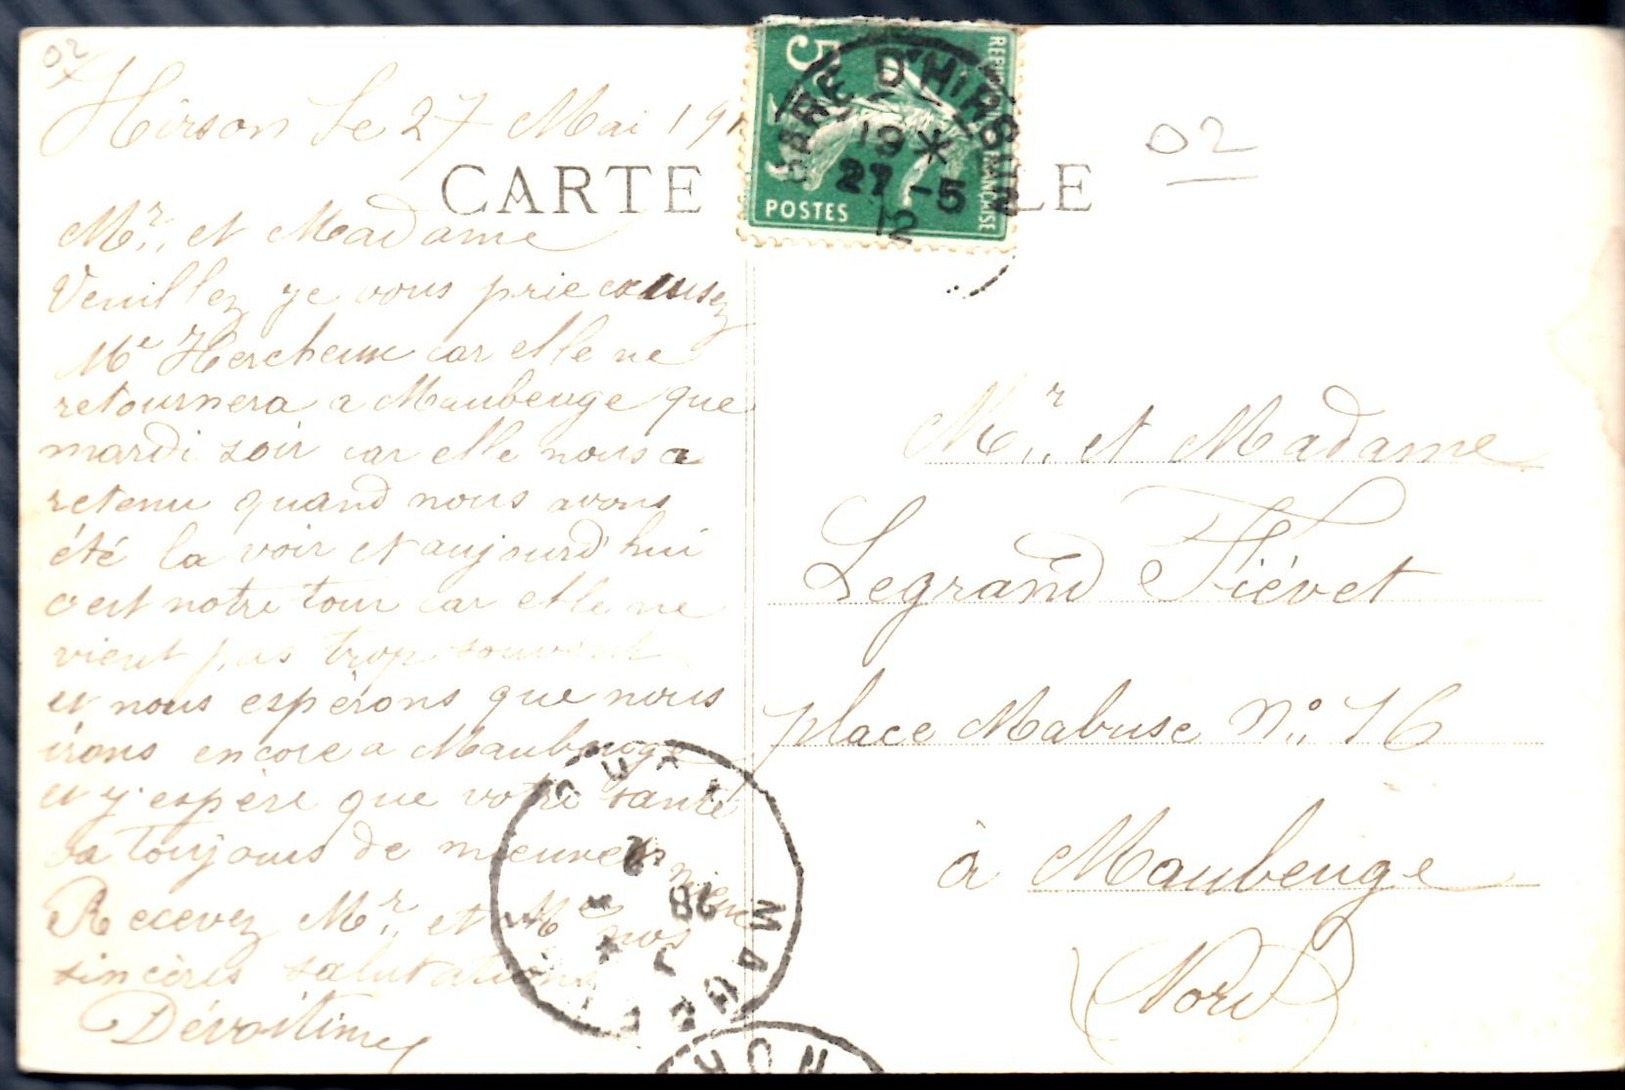 02
Hirson le 27 Mai 191
CARTE
LE
02
5c
REPUBLIQUE FRANÇAISE
POSTES
GARE D'HIRSON
19 *
27 -5
12
Mr. et Madame
Veuillez je vous prie excusez
Me Hercheux car elle ne
retournera a Maubeuge que
mardi soir car elle nous a
retenu quand nous avons
été la voir et aujourd'hui
c'est notre tour car elle ne
vient pas trop souvent
et nous espérons que nous
irons encore a Maubeuge
et j'espère que votre santé
va toujours de mieux en
mieux
Recevez Mr. et Me nos
sincères salutations
Mr. et Madame
Legrand Fiévet
place Mabuse No. 16
à Maubeuge
Nord
MAUBEUGE
28
12
NORD